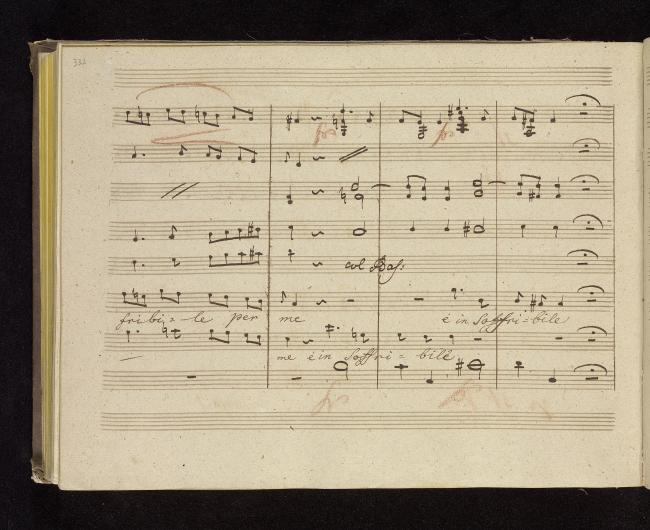 col Bass:
fribi=le per me è in Soffri=bile
me è in Soffri=bile